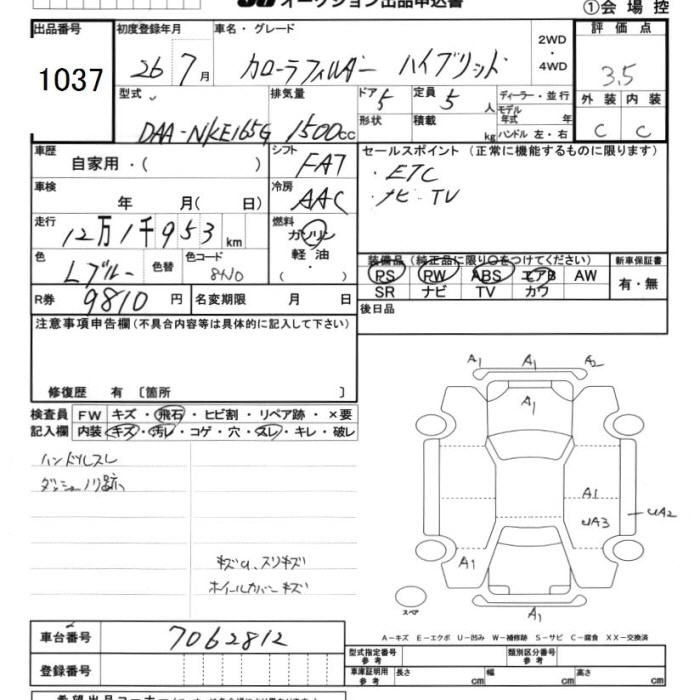 オークション出品申込書
①会場控
出品番号 初度登録年月 車名・グレード 評価点
1037 26 7月 カローラフィルダー ハイブリッド 2WD・4WD 3.5
型式 排気量 ドア 5 定員 5人 ディーラー・並行 外装 内装
DAA-NKE165G 1500cc 形状 積載 kg モデル年式 年 C C
ハンドル 左・右
車歴 シフト セールスポイント (正常に機能するものに限ります)
自家用・( ) FAT ・ETC
車検 冷房 ・ナビ TV
年 月( 日) AAC
走行 燃料
12万1千953km ガソリン
軽油・( )
色 色替 色コード 装備品(純正品に限り○をつけてください) 新車保証書
Lブルー 8N0 PS PW ABS エアB AW 有・無
R券 9810円 名変期限 月 日 SR ナビ TV カワ
注意事項申告欄(不具合内容等は具体的に記入して下さい) 後日品
修復歴 有 〔箇所 〕
検査員 FW キズ・飛石・ヒビ割・リペア跡・×要
記入欄 内装 キズ・汚レ・コゲ・穴・スレ・キレ・破レ
ハンドルスレ
ダッシュノリ跡
キズu、スリキズ
ホイールカバーキズ
A1 A1 A2
A1
A1
UA2
UA3
A1
A1
スペア
A-キズ E-エクボ U-凹み W-補修跡 S-サビ C-腐食 XX-交換済
車台番号 7062812
型式指定番号 参考 類別区分番号 参考
登録番号 車庫証明用 参考 長さ cm 幅 cm 高さ cm